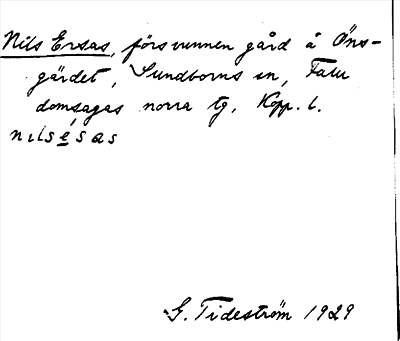 Nils Ersas, försvunnen gård å Öns-
gärdet, Sundborns sn, Falu
domsagas norra tg, Kopp. l.
nılsésas
G. Tideström 1929